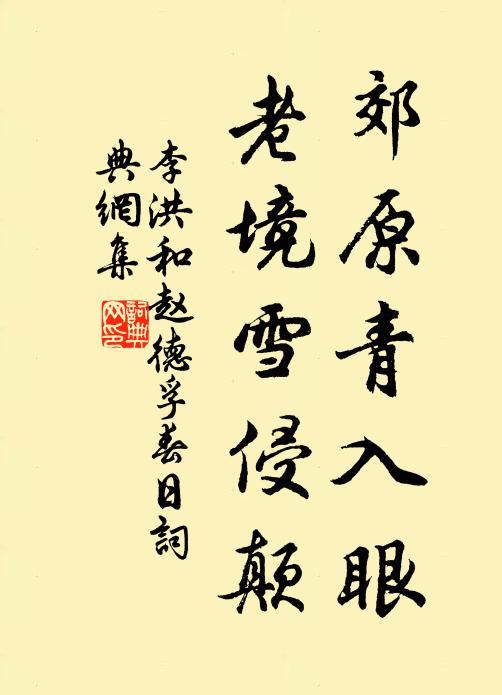 郊原青入眼
老境雪侵颠
李洪和赵德孚春日詞
典網集
詞典網印